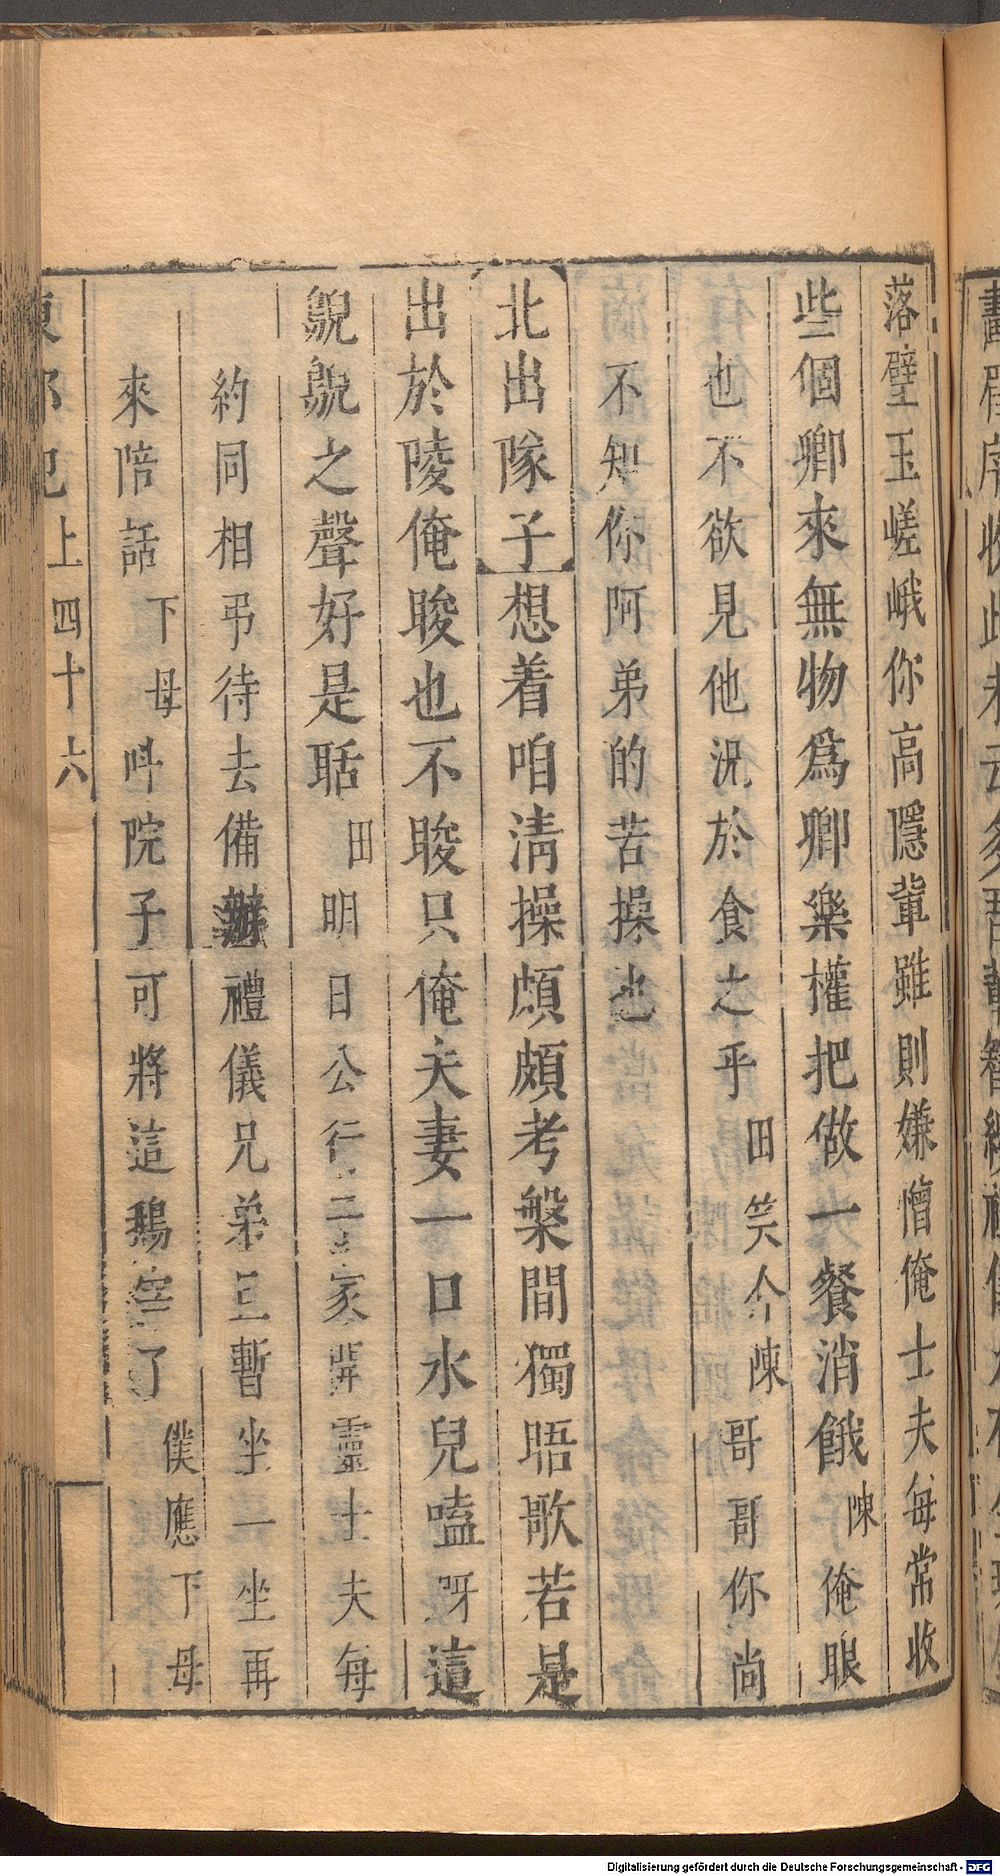 落璧玉嵯峨你高隱輩雖則嫌憎俺士夫每常收
些個卿來無物爲卿樂權把做一餐消餓陳俺眼
也不欲見他况於食之乎田笑介陳哥哥你尚
不知你阿弟的苦操也
北出隊子想着咱淸操頗頗考槃間獨晤歌若是
出於陵俺睃也不睃只俺夫妻一口水兒嗑呀這
鶃鶃之聲好是聒田明日公行三家 靈士夫每
約同相弔待去備辦禮儀兄弟 暫坐一坐再
來陪話下母呌院子可將這鵝宰了僕應下母
上四十六
Digitalisierung gefördert durch die Deutsche Forschungsgemeinschaft - DFG